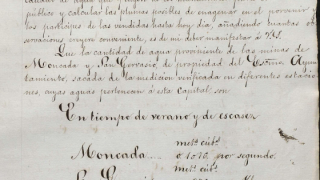 público y calcular las plumas posibles de enagenar en el porvenir
los partícipes de las vendidas hasta hoy dia, añadiendo cuantas ob-
servaciones crea convenientes, es de mi deber manifestar á V.S.
Que la cantidad de agua proviniente de las minas de
Moncada y San Gervasio, de propiedad del Exmo. Ayun-
tamiento, sacada de la medicion verificada en diferentes estacio-
nes, cuyas aguas pertenecen á esta capital son
En tiempo de verano y de escasez
met.s cúb.s
Moncada ..... 0'1070 por segundo.
met.s cúb.s